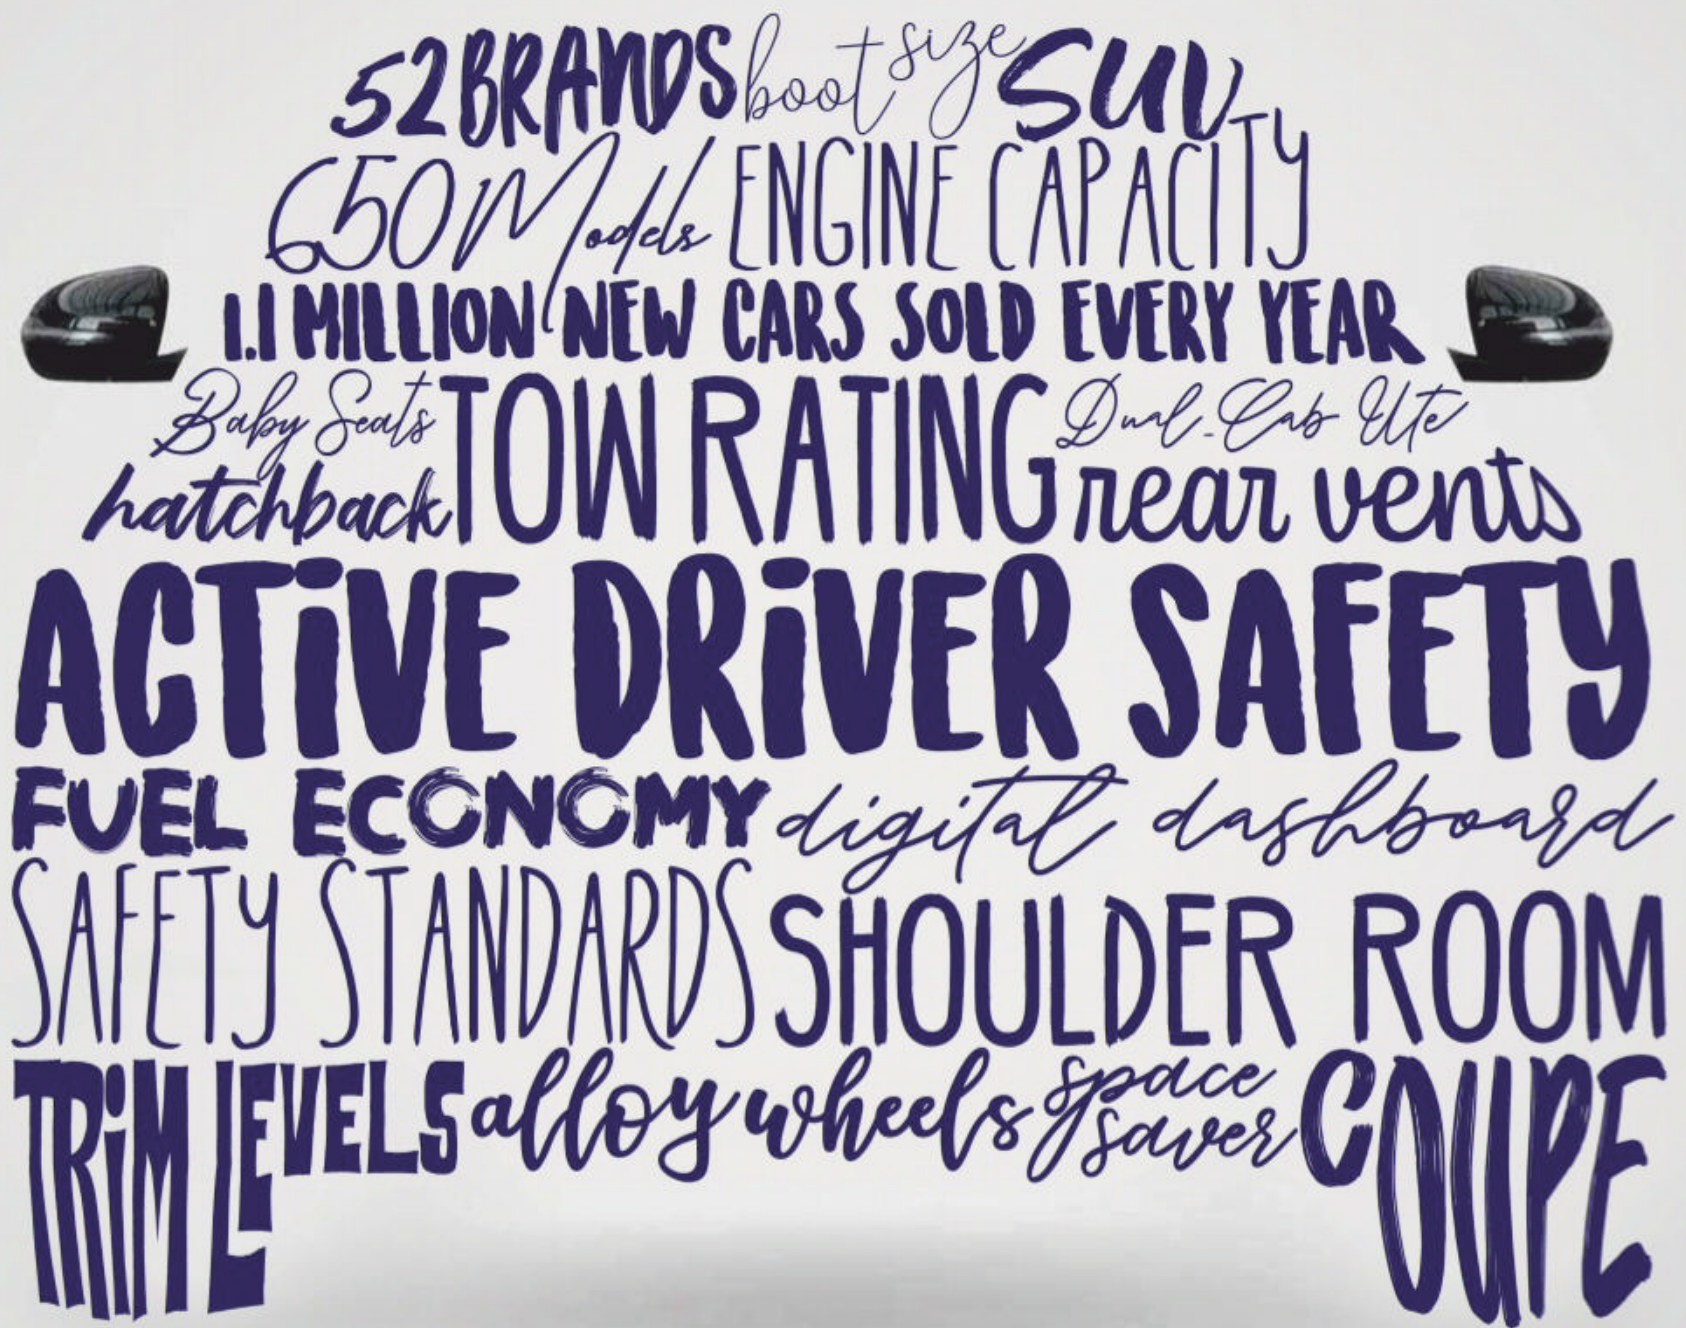 52 BRANDS boot size SUV
650 Models ENGINE CAPACITY
1.1 MILLION NEW CARS SOLD EVERY YEAR
Baby Seats TOW RATING Dual-Cab Ute
hatchback rear vents
ACTiVE DRiVER SAFETY
FUEL ECONOMY digital dashboard
SAFETY STANDARDS SHOULDER ROOM
TRiM LEVELS alloy wheels space saver COUPE